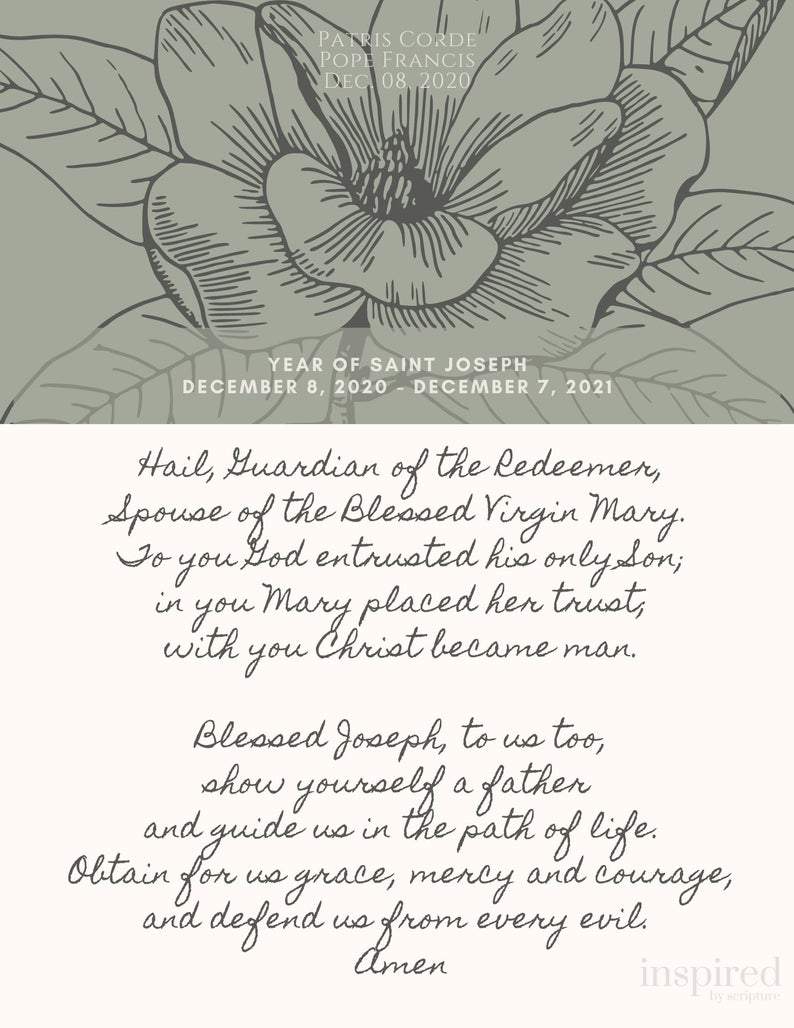 Patris Corde
Pope Francis
Dec. 08, 2020
YEAR OF SAINT JOSEPH
DECEMBER 8, 2020 - DECEMBER 7, 2021
Hail, Guardian of the Redeemer,
Spouse of the Blessed Virgin Mary.
To you God entrusted his only Son;
in you Mary placed her trust;
with you Christ became man.
Blessed Joseph, to us too,
show yourself a father
and guide us in the path of life.
Obtain for us grace, mercy and courage,
and defend us from every evil.
Amen
inspired
by scripture